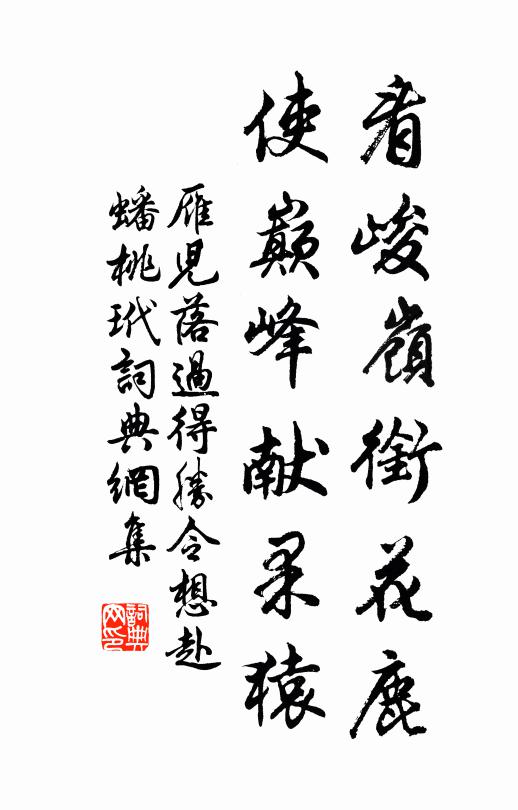 看峻嶺銜花鹿
使巔峰献果猿
雁児落過得勝令想赴
蟠桃玳詞典網集
詞典网印